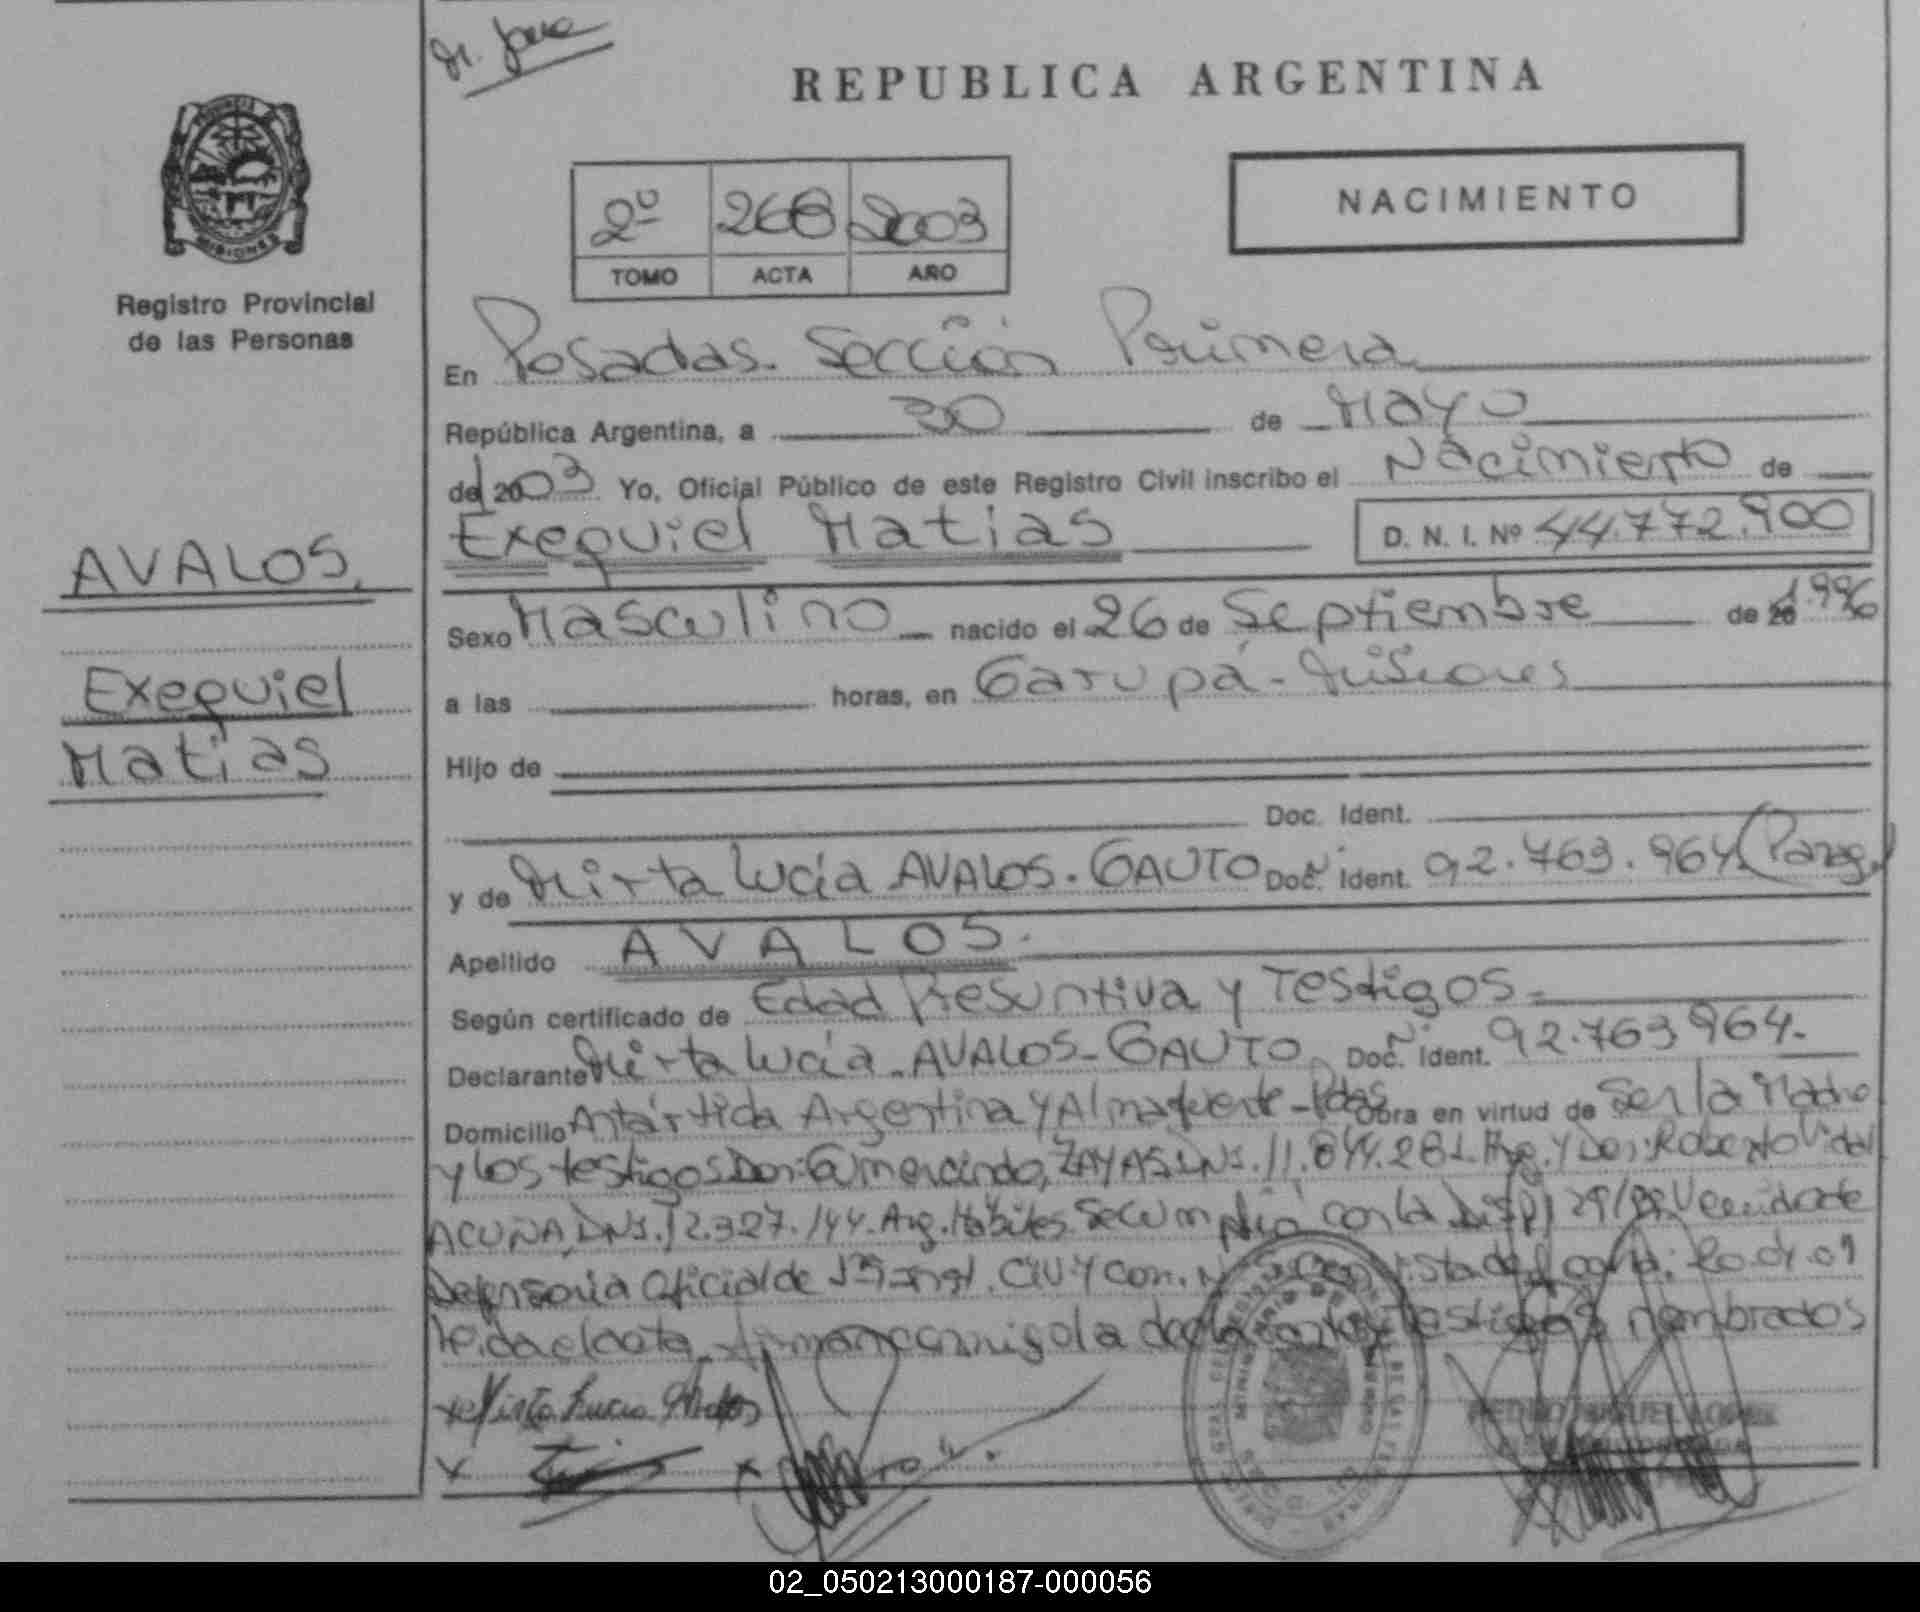 REPUBLICA ARGENTINA
MISIONES
Registro Provincial
de las Personas
2º 268 2003
TOMO ACTA AÑO
NACIMIENTO
En Posadas. Sección Primera
República Argentina, a 30 de Mayo
del 2003 Yo, Oficial Público de este Registro Civil inscribo el Nacimiento de
Exequiel Matias D. N. I. Nº 44.772.900
AVALOS.
Exequiel
Matias
Sexo Masculino nacido el 26 de Septiembre de 20 1.996
a las horas, en Garupá - Misiones
Hijo de
Doc. Ident.
y de Mirta Lucía AVALOS. GAUTO Doc. Nº Ident. 92.763.964 (Parag.)
Apellido AVALOS.
Según certificado de Edad Presuntiva y Testigos.
Declarante Mirta Lucía AVALOS - GAUTO Doc. Nº Ident. 92.763.964.
Domicilio Antártida Argentina y Almafuerte - Pdas Obra en virtud de Ser la Madre
y los testigos Don: Gumercindo, ZAYAS DNI. 11.844.281. Arg. y Don: Roberto Vidal
ACUÑA, DNI. 12.327.144. Arg. Hábiles. Se cumplió con la Disp.
Defensoria Oficial de Inst. Civ. y Com.
leida el acta, firman conmigo la declarante y testigos nombrados
Mirta Lucia Avalos
02_050213000187-000056